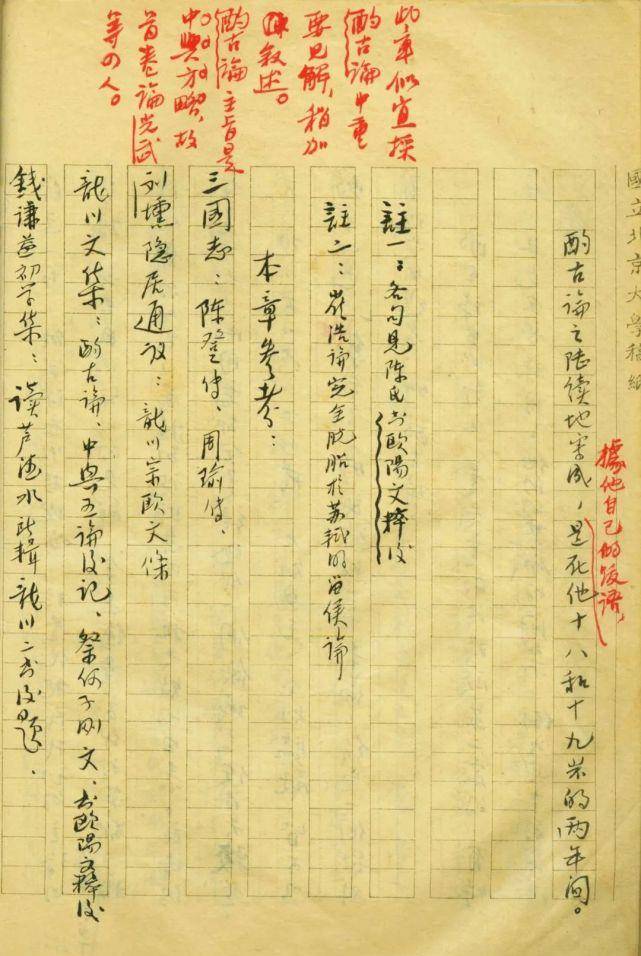 國立北京大學稿紙
酌古論之陸續地寫成，是在他十八和十九岁的两年间。
據他自己的後語，
註一：各句見陈氏书欧陽文粹後
註二：崔浩論完全脱胎於苏軾的留侯論
本章参考：
三國志：陈登传、周瑜传、
刘壎隐居通议：龍川宗欧文條
龍川文集：酌古論、中興五論後记、祭何子刚文、书歐陽文粹後
錢谦益初学集：读芦德水所輯龍川二书後題、
此章似宜採
酌古論中重
要見解，稍加
叙述。
酌古論主旨是
中興方略，故
首卷論光武
等四人。